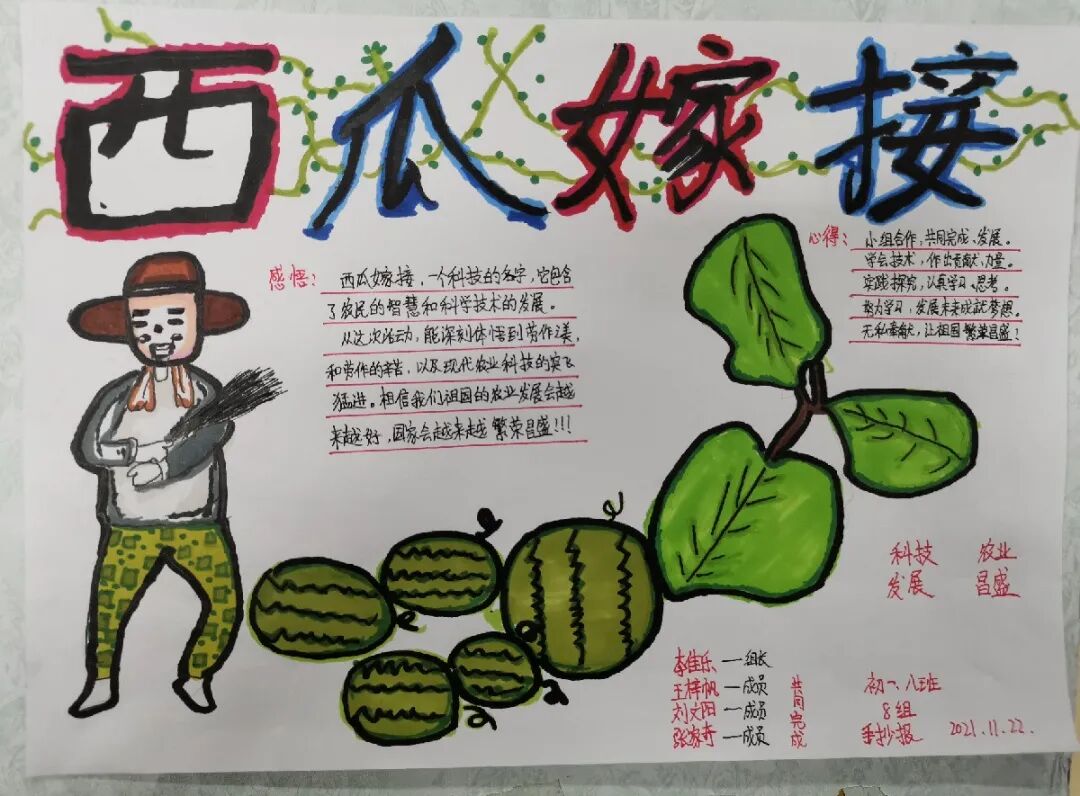 西瓜嫁接
感悟：
西瓜嫁接，一个科技的名字，它包含
了农民的智慧和科学技术的发展。
从这次活动，能深刻体悟到劳作之美，
和劳作的辛苦，以及现代农业科技的突飞
猛进。相信我们祖国的农业发展会越
来越好，国家会越来越繁荣昌盛!!!
心得：
小组合作，共同完成、发展。
学会技术，作出贡献、力量。
实践探究，认真学习、思考。
努力学习，发展未来成就梦想。
无私奉献，让祖国繁荣昌盛！
科技 农业
发展 昌盛
李佳乐 — 组长
王梓帆 — 成员
刘文阳 — 成员
张家奇 — 成员
共同完成
初一、八班
8组
手抄报 2021.11.22.